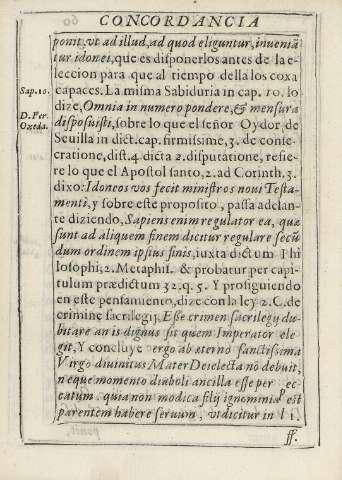 CONCORDANCIA
ponit, vt ad illud, ad quod eliguntur, inueniã
tur idonei, que es disponerlos antes de la e-
leccion para que al tiempo della los coxa
capaces. La misma Sabiduria in cap. 10. lo
Sap. 10.
dize, Omnia in numero pondere, & mensura
D. Fer.
disposuisti, sobre lo que el señor Oydor, de
Oxeda.
Seuilla in dict. cap. firmissime, 3. de conse-
cratione, dist. 4. dicta 2. disputatione, refie-
re lo que el Apostol santo, 2. ad Corinth. 3.
dixo: Idoneos vos fecit ministros noui Testa-
menti, y sobre este proposito, passa adelan-
te diziendo, Sapiens enim regulator ea, quæ
sunt ad aliquem finem dicitur regulare secũ
dum ordinem ipsius finis, iuxta dictum Phi
losophi, 2. Metaphis. & probatur per capi-
tulum prædictum 32. q. 5. Y prosiguiendo
en este pensamiento, dize con la ley 2. C. de
crimine sacrilegij. Esse crimen sacrilegij du-
bitare an is dignus sit quem Imperator ele
git, Y concluye ergo ab æterno sanctissima
Virgo diuinitus Mater Dei electa nõ debuit,
neque momento diaboli ancilla esse per pec
catum. quia non modica filij ignominia est
parentem habere seruum, vt dicitur in l 1.
ff.